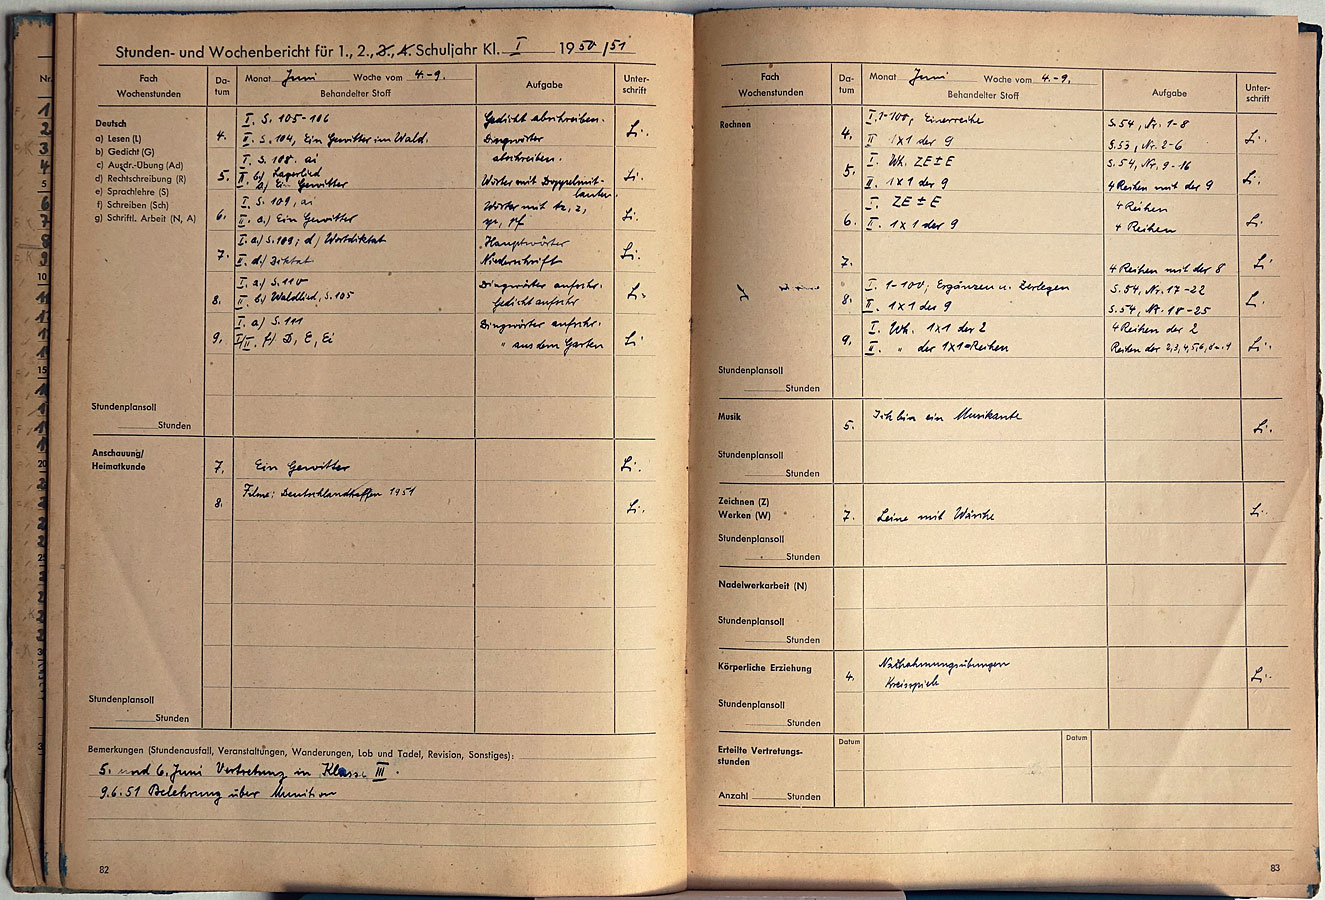 Stunden- und Wochenbericht für 1., 2., 3., 4. Schuljahr Kl. I 1950/51
Fach
Wochenstunden
Da-
tum
Monat Juni Woche vom 4.-9.
Behandelter Stoff
Aufgabe
Unter-
schrift
Deutsch
a) Lesen (L)
b) Gedicht (G)
c) Ausdr.-Übung (Ad)
d) Rechtschreibung (R)
e) Sprachlehre (S)
f) Schreiben (Sch)
g) Schriftl. Arbeit (N, A)
4. I. S. 105-106 Gedicht abschreiben.
II. S. 104, Ein Gewitter im Wald. Dingwörter Li.
I. S. 108. ai abschreiben.
5. II. b) Lagerlied
a) Ein Gewitter Wörter mit Doppelmit- Li.
lauten
I. S. 109, ai Wörter mit tz, z,
6. II. a) Ein Gewitter pf Li.
I. a) S. 109; d) Wortdiktat Hauptwörter
7. II. d) Diktat Niederschrift Li.
I. a) S. 110 Dingwörter aufschr.
8. II. b) Waldlied, S. 105 Gedicht aufschr Li.
I. a) S. 111 Dingwörter aufschr.
9. I/II. f) D, E, Ei " aus dem Garten Li.
Stundenplansoll
Stunden
Anschauung/
Heimatkunde
7. Ein Gewitter Li.
8. Filme: Deutschlandtreffen 1951 Li.
Stundenplansoll
Stunden
Bemerkungen (Stundenausfall, Veranstaltungen, Wanderungen, Lob und Tadel, Revision, Sonstiges):
5. und 6. Juni Vertretung in Klasse III.
9.6.51 Belehrung über Munition
82
Fach
Wochenstunden
Da-
tum
Monat Juni Woche vom 4.-9.
Behandelter Stoff
Aufgabe
Unter-
schrift
Rechnen
I. 1-100, Einerreihe S. 54, Nr. 1-8
4. II 1x1 der 9 S. 53, Nr. 2-6 Li.
5. I. Wh. ZE±E S. 54, Nr. 9-16
II. 1x1 der 9 4 Reihen mit der 9 Li.
I. ZE ± E 4 Reihen
6. II. 1x1 der 9 4 Reihen Li.
7. 4 Reihen mit der 8 Li
I. 1-100; Ergänzen u. Zerlegen S. 54, Nr. 17-22
8. II. 1x1 der 9 S. 54, Nr. 18-25 Li.
I. Wh. 1x1 der 2 4 Reihen der 2
9. II. " der 1x1=Reihen Reihen der 2,3,4,5,6,8u.9 Li.
Stundenplansoll
Stunden
Musik
5. Ich bin ein Musikante Li.
Stundenplansoll
Stunden
Zeichnen (Z)
Werken (W)
7. Leine mit Wäsche Li.
Stundenplansoll
Stunden
Nadelwerkarbeit (N)
Stundenplansoll
Stunden
Körperliche Erziehung
4. Nachahmungsübungen
Kreisspiele Li.
Stundenplansoll
Stunden
Erteilte Vertretungs-
stunden
Datum
Datum
Anzahl Stunden
83